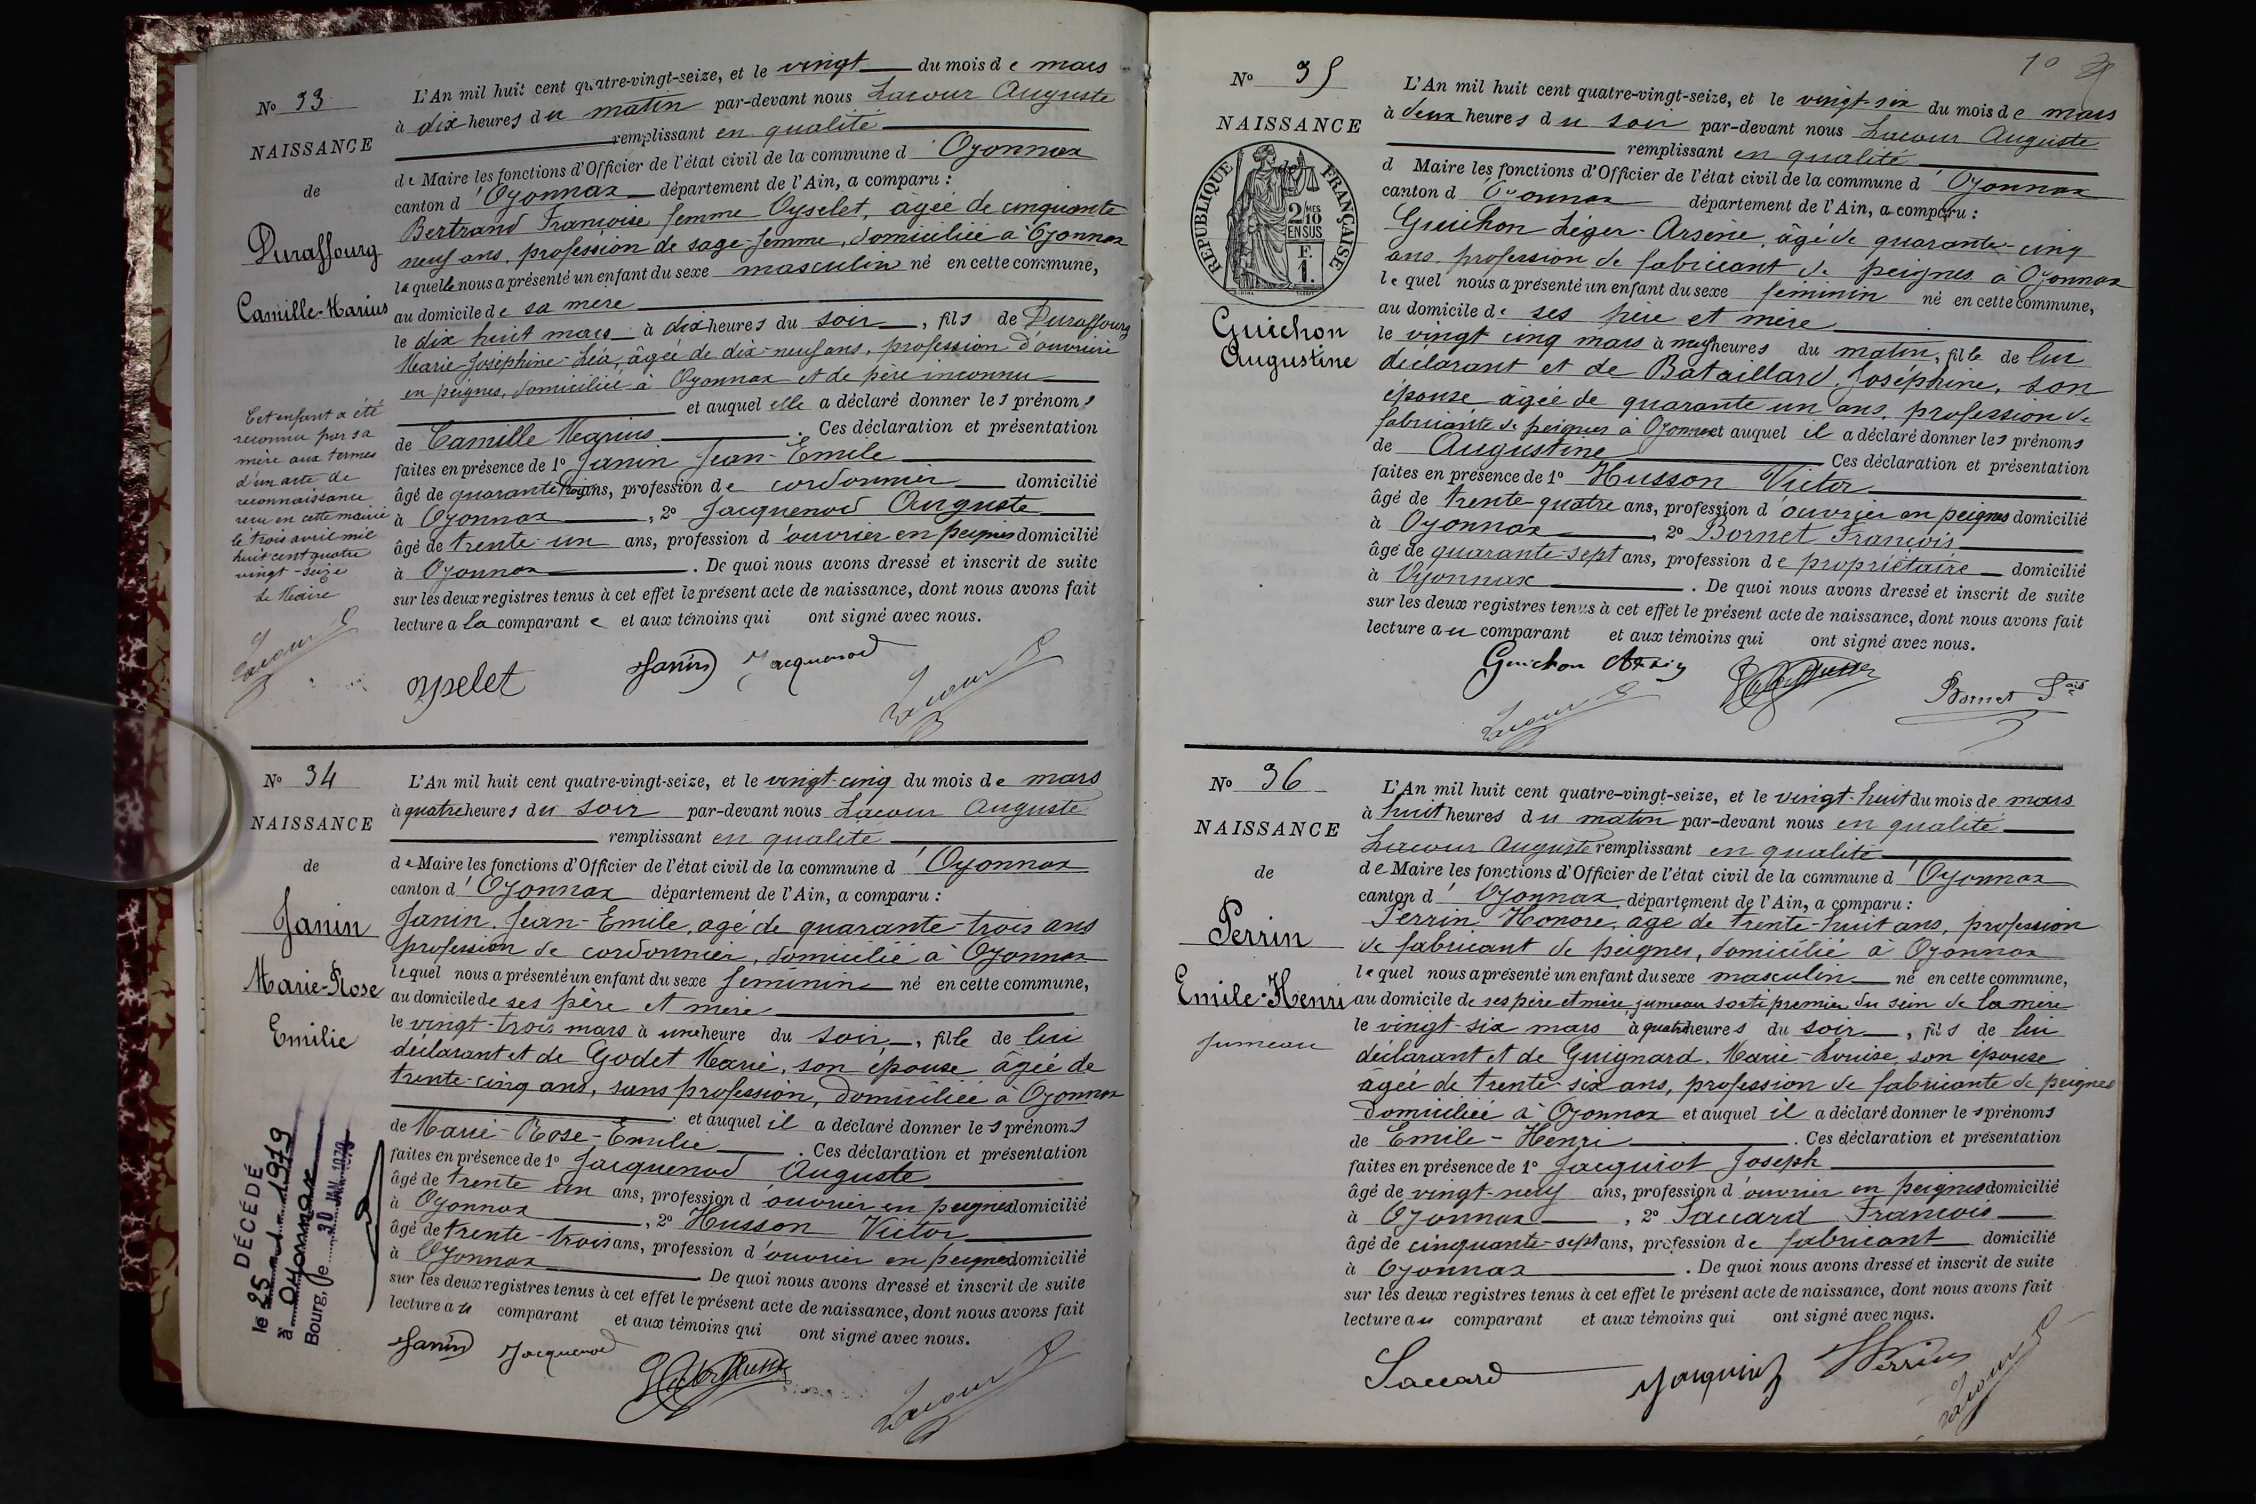 N° 33
NAISSANCE
de
Duraffourg
Camille-Marius
Cet enfant a été
reconnu par sa
mère aux termes
d'un acte de
reconnaissance
reçu en cette mairie
le trois avril mil
huit cent quatre
vingt-seize
Le Maire
Lacour
L'An mil huit cent quatre-vingt-seize, et le vingt du mois de mars
à dix heures du matin par-devant nous Lacour Auguste
remplissant en qualité
de Maire les fonctions d'Officier de l'état civil de la commune d'Oyonnax
canton d'Oyonnax département de l'Ain, a comparu :
Bertrand Françoise femme Oyselet, âgée de cinquante
neuf ans, profession de sage-femme, domiciliée à Oyonnax
laquelle nous a présenté un enfant du sexe masculin né en cette commune,
au domicile de sa mère
le dix huit mars à dix heures du soir, fils de Duraffourg
Marie Joséphine-Léa, âgée de dix-neuf ans, profession d'ouvrière
en peignes, domiciliée à Oyonnax et de père inconnu
et auquel elle a déclaré donner les prénoms
de Camille Marius. Ces déclaration et présentation
faites en présence de 1° Janin Jean-Emile
âgé de quarante trois ans, profession de cordonnier domicilié
à Oyonnax, 2° Jacquenod Auguste
âgé de trente un ans, profession d'ouvrier en peignes domicilié
à Oyonnax. De quoi nous avons dressé et inscrit de suite
sur les deux registres tenus à cet effet le présent acte de naissance, dont nous avons fait
lecture a la comparante et aux témoins qui ont signé avec nous.
Janin Jacquenod
Lacour
N° 34
NAISSANCE
de
Janin
Marie-Rose
Emilie
DÉCÉDÉ
le 25
à Oyonnax
Bourg, le
L'An mil huit cent quatre-vingt-seize, et le vingt-cinq du mois de mars
à quatre heures du soir par-devant nous Lacour Auguste
remplissant en qualité
de Maire les fonctions d'Officier de l'état civil de la commune d'Oyonnax
canton d'Oyonnax département de l'Ain, a comparu :
Janin, Jean-Emile, agé de quarante-trois ans
profession de cordonnier, domicilié à Oyonnax
lequel nous a présenté un enfant du sexe féminin né en cette commune,
au domicile de ses père et mère
le vingt-trois mars à une heure du soir, fille de lui
déclarant et de Godet Marie, son épouse âgée de
trente-cinq ans, sans profession, domiciliée à Oyonnax
et auquel il a déclaré donner les prénoms
de Marie-Rose-Emilie. Ces déclaration et présentation
faites en présence de 1° Jacquenod Auguste
âgé de trente un ans, profession d'ouvrier en peignes domicilié
à Oyonnax, 2° Husson Victor
âgé de trente-trois ans, profession d'ouvrier en peignes domicilié
à Oyonnax. De quoi nous avons dressé et inscrit de suite
sur les deux registres tenus à cet effet le présent acte de naissance, dont nous avons fait
lecture au comparant et aux témoins qui ont signé avec nous.
Janin Jacquenod
Lacour
10
N° 35
NAISSANCE
de
RÉPUBLIQUE FRANÇAISE
2/10 MES
EN SUS
F.
1.
Guichon
Augustine
L'An mil huit cent quatre-vingt-seize, et le vingt-six du mois de mars
à deux heures du soir par-devant nous Lacour Auguste
remplissant en qualité
d Maire les fonctions d'Officier de l'état civil de la commune d'Oyonnax
canton d'Oyonnax département de l'Ain, a comparu :
Guichon Léger-Arsène, âgé de quarante-cinq
ans, profession de fabricant de peignes à Oyonnax
lequel nous a présenté un enfant du sexe féminin né en cette commune,
au domicile de ses père et mère
le vingt cinq mars à neuf heures du matin, fille de lui
déclarant et de Bataillard, Joséphine, son
épouse âgée de quarante un ans, profession de
fabricante de peignes à Oyonnax et auquel il a déclaré donner les prénoms
de Augustine Ces déclaration et présentation
faites en présence de 1° Husson Victor
âgé de trente-quatre ans, profession d'ouvrier en peignes domicilié
à Oyonnax, 2° Bornet François
âgé de quarante-sept ans, profession de propriétaire domicilié
à Oyonnax. De quoi nous avons dressé et inscrit de suite
sur les deux registres tenus à cet effet le présent acte de naissance, dont nous avons fait
lecture au comparant et aux témoins qui ont signé avec nous.
Guichon
Lacour
Bornet Fois
N° 36
NAISSANCE
de
Perrin
Emile-Henri
jumeau
L'An mil huit cent quatre-vingt-seize, et le vingt-huit du mois de mars
à huit heures du matin par-devant nous en qualité
Lacour Auguste remplissant en qualité
de Maire les fonctions d'Officier de l'état civil de la commune d'Oyonnax
canton d'Oyonnax département de l'Ain, a comparu :
Perrin Honoré, agé de trente-huit ans, profession
de fabricant de peignes, domicilié à Oyonnax
lequel nous a présenté un enfant du sexe masculin né en cette commune,
au domicile de ses père et mère, jumeau sorti premier du sein de la mère
le vingt-six mars à quatre heures du soir, fils de lui
déclarant et de Guignard, Marie-Louise, son épouse
âgée de trente-six ans, profession de fabricante de peignes
domiciliée à Oyonnax et auquel il a déclaré donner les prénoms
de Emile-Henri. Ces déclaration et présentation
faites en présence de 1° Jacquiot Joseph
âgé de vingt-neuf ans, profession d'ouvrier en peignes domicilié
à Oyonnax, 2° Saccard François
âgé de cinquante-sept ans, profession de fabricant domicilié
à Oyonnax. De quoi nous avons dressé et inscrit de suite
sur les deux registres tenus à cet effet le présent acte de naissance, dont nous avons fait
lecture au comparant et aux témoins qui ont signé avec nous.
Saccard Jacquiot Perrin
Lacour